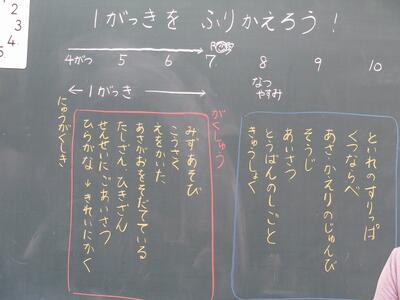 2
3
4
5
1がっきを ふりかえろう!
4がつ 5 6 7 8 9 10
←1がっき→
なつ
やすみ
にゅうがくしき
がくしゅう
みずあそび
こうさく
えをかいた
あさがおをそだてている
たしざん、ひきざん
せんせいにごあいさつ
ひらがな→きれいにかく
といれのすりっぱ
くつならべ
あさ・かえりのじゅんび
そうじ
あいさつ
とうばんのしごと
きゅうしょく